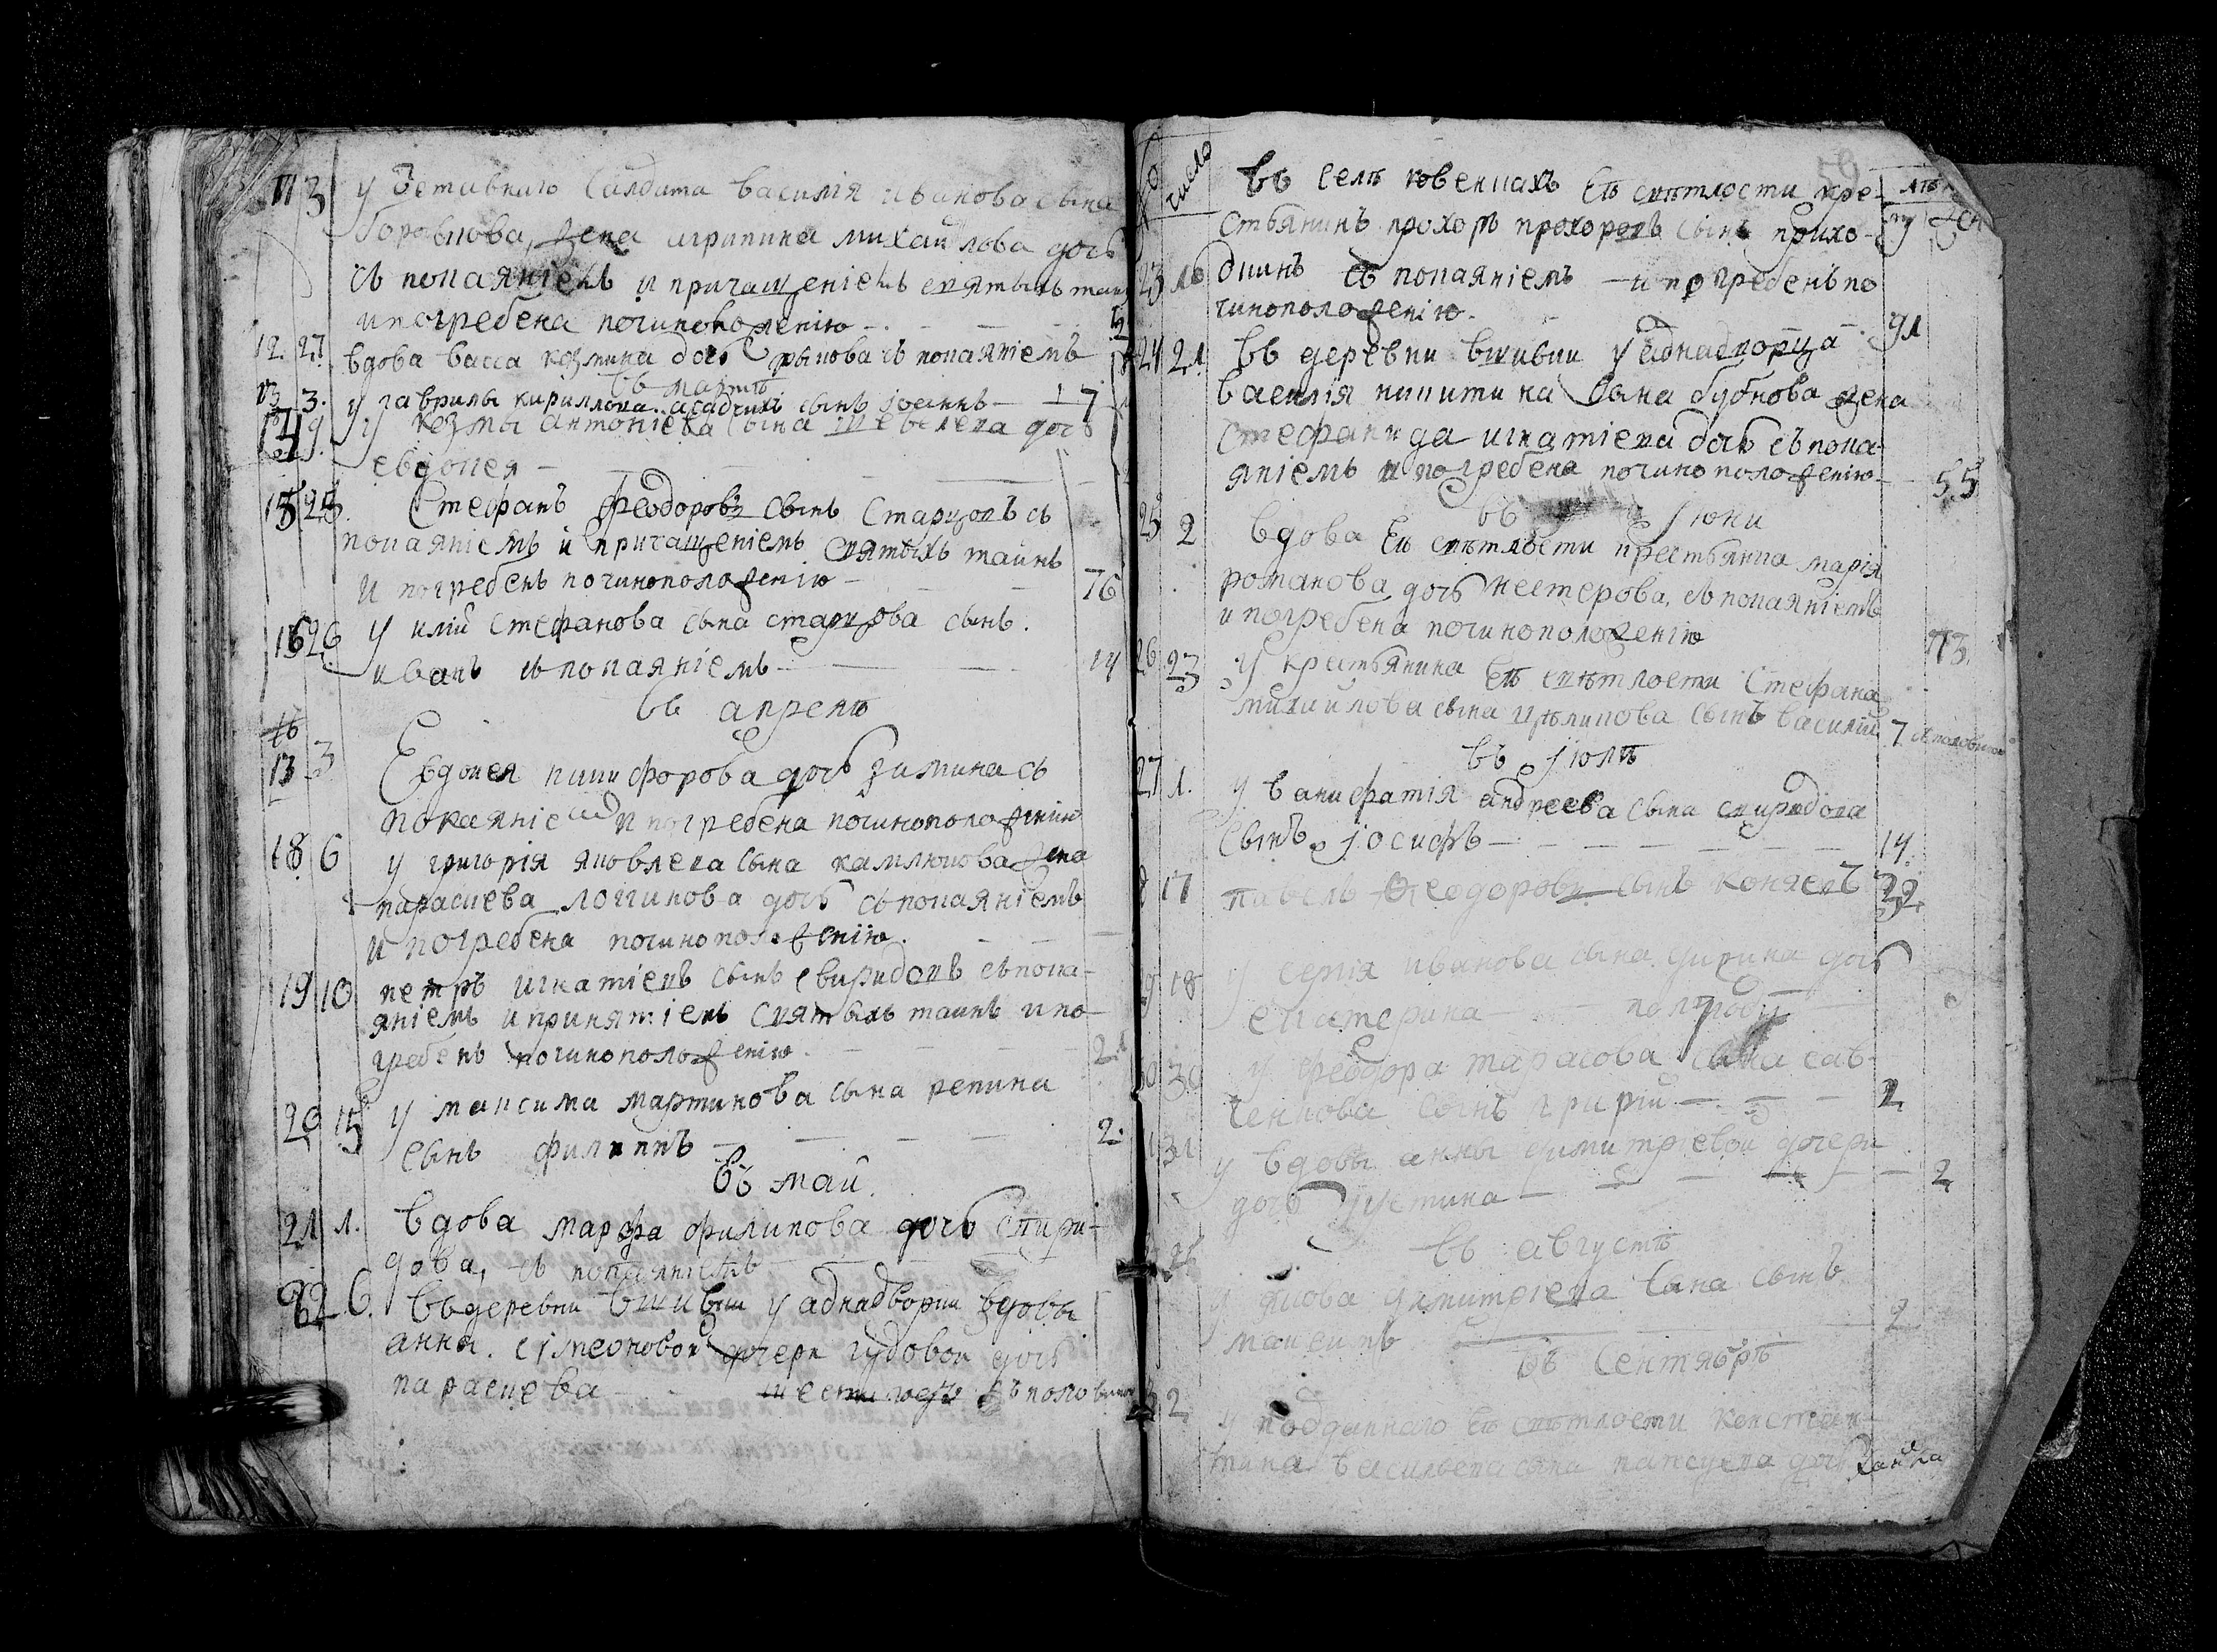 11 3 у Отставнаго Салдата василія иванова сына
боровкова, жена агрипина михайлова дочь
съ покаяніемъ и причащеніемъ святыхъ таин
и погребена по чиноположенію
12. 27. вдова васса козмина дочь с покаяніемъ
въ мартѣ
13 3. у гаврилы кириллова сынъ іоаннъ 17
14 9. у козмы антоніева сына шевелева дочь
евдокея
15 25. Стефанъ феодоровъ сынъ Старцовъ съ
покаяніемъ и причащеніемъ святыхъ таинъ
и погребенъ по чиноположенію 76
16 26 у иліи стефанова сына старцова сынъ.
иванъ съ покаяніемъ 14
въ апрелѣ
16
13 3 Евдокея никифорова дочь зимина съ
покаяніемъ и погребена по чиноположенію
18 6 у григорія яковлева сына камлюкова жена
параскева логгинова дочь съ покаяніемъ
и погребена по чиноположенію.
19 10 петръ игнатіевъ сынъ свиридовъ съ пока-
яніемъ и принятіемъ святыхъ таинъ и по-
гребенъ по чиноположенію. 21
20 15 у максима мартинова сына репина
сынъ филиппъ 2.
въ маіи
21 1. вдова марфа филипова дочь спири-
дова, съ покаяніемъ
22 6. въ деревни вшивки у аднадворки вдовы
анны. сімеоновой дочери гудовой дочь
параскева шести годъ съ половиною
число
въ селѣ ювенкахъ Еѣ свѣтлости кре-
стьянинъ прохоръ прохоровъ сынъ прихо-
23 16 дкинъ съ покаяніемъ и погребенъ по
чиноположенію. 91
24 21 въ деревни вшивки у аднадворца
василія никитина сына бубнова жена
стефанида игнатіева дочь съ пока-
яніемъ и погребена по чиноположенію 55
въ іюни
25 2 вдова Еѣ свѣтлости крестьянка марія
романова дочь нестерова, съ покаяніемъ
и погребена по чиноположенію 73.
26 23 у крестьянина Еѣ свѣтлости Стефана
михаилова сына сынъ василій 7 съ половиною
въ іюлѣ
27 1. у ванифатія андреева сына свиридова
сынъ іосифъ 14
17 павелъ Феодоровъ сынъ коняевъ 32
18 у сергія иванова сына дочь
екатерина полгода
30 у феодора тарасова сына сав-
ченкова сынъ 2
31 у вдовы анны димитріевой дочери
дочь іустина 2
въ августѣ
димитріева сына сынъ
2
въ Сентябрѣ
2 у подданнаго Еѣ свѣтлости констан-
тина васильева сына дочь